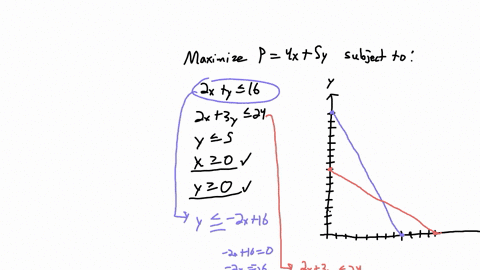 Maximize P = 4x + 5y subject to:
2x + y ≤ 16
2x + 3y ≤ 24
y ≤ 5
x ≥ 0 ✓
y ≥ 0 ✓
y ≤ -2x + 16
-2x + 16 = 0
y